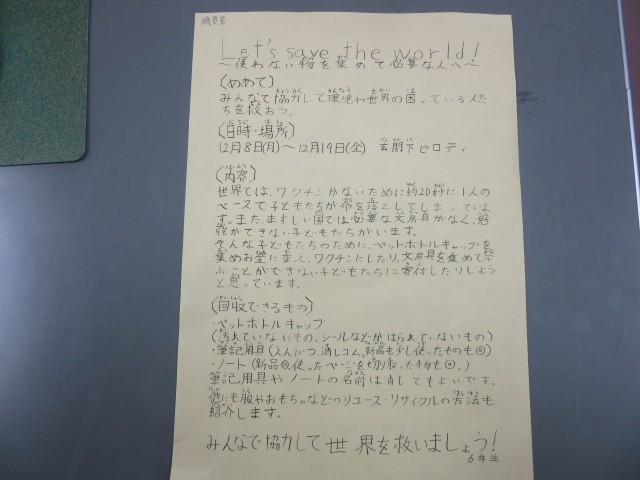 職員室
Let's save the world!
～使わない物を集めて必要な人へ～
(めあて)
みんなで協力して環境や世界の困っている人た
ちを救おう。
(日時・場所)
12月8日(月)～12月19日(金) 玄関下ピロティ
(内容)
世界では、ワクチンがないために約20秒に1人の
ペースで子どもたちが命を落としてしまっていま
す。また、まずしい国では必要な文房具がなく、勉
強ができない子どもたちがいます。
そんな子どもたちのために、ペットボトルキャップを
集めお金に変え、ワクチンにしたり、文房具を集めて学
ぶことができない子どもたちに寄付したりしよう
と思っています。
(回収できるもの)
・ペットボトルキャップ
(汚れていないもの、シールなどがはられていないもの)
・筆記用具(えんぴつ、消しゴム。新品も少し使ったものも)
・ノート(新品、使ったページを切り取ったものも。)
筆記用具やノートの名前は消してもよいです。
他にも服やおもちゃなどのリユース・リサイクルの方法も
紹介します。
みんなで協力して世界を救いましょう!
6年生